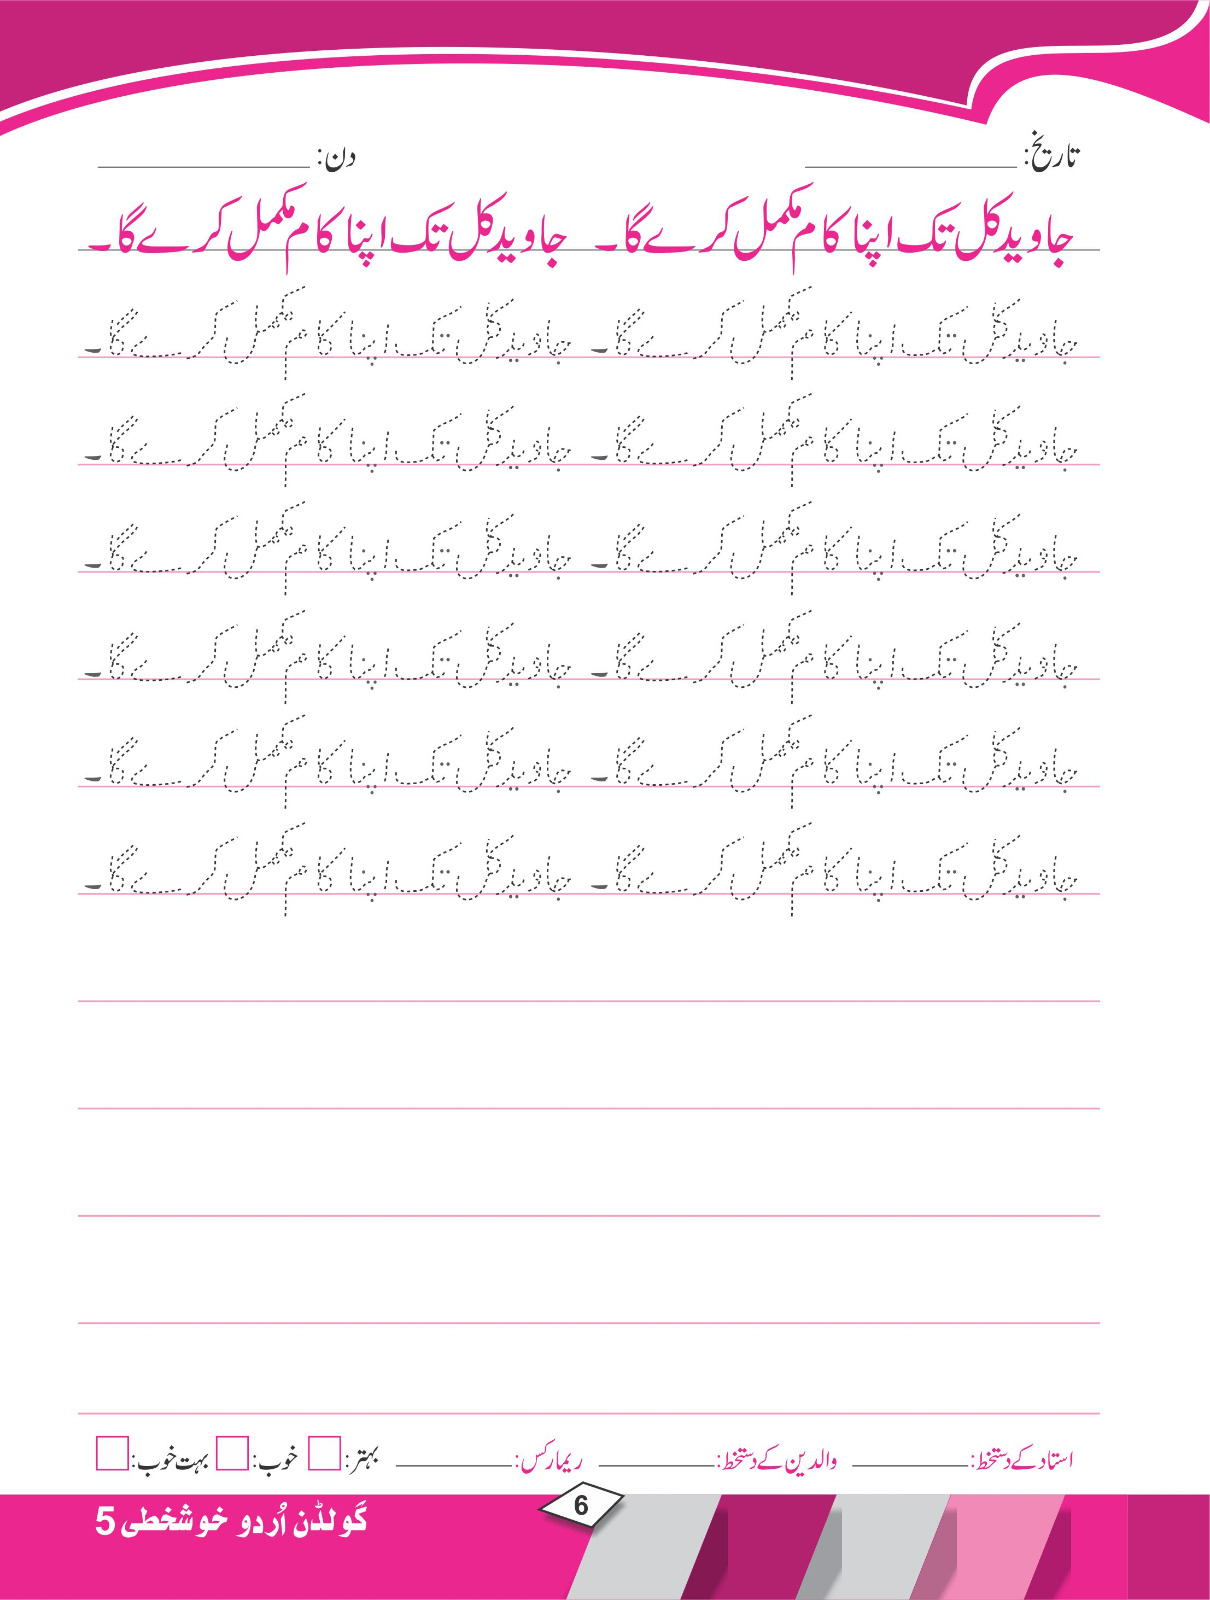 تاریخ: ____________ دن: ____________
جاوید کل تک اپنا کام مکمل کرے گا۔ جاوید کل تک اپنا کام مکمل کرے گا۔
جاوید کل تک اپنا کام مکمل کرے گا۔ جاوید کل تک اپنا کام مکمل کرے گا۔
جاوید کل تک اپنا کام مکمل کرے گا۔ جاوید کل تک اپنا کام مکمل کرے گا۔
جاوید کل تک اپنا کام مکمل کرے گا۔ جاوید کل تک اپنا کام مکمل کرے گا۔
جاوید کل تک اپنا کام مکمل کرے گا۔ جاوید کل تک اپنا کام مکمل کرے گا۔
جاوید کل تک اپنا کام مکمل کرے گا۔ جاوید کل تک اپنا کام مکمل کرے گا۔
جاوید کل تک اپنا کام مکمل کرے گا۔ جاوید کل تک اپنا کام مکمل کرے گا۔
استاد کے دستخط: ________ والدین کے دستخط: ________ ریمارکس: ________ بہتر: خوب: بہت خوب:
6
گولڈن اُردو خوشخطی 5